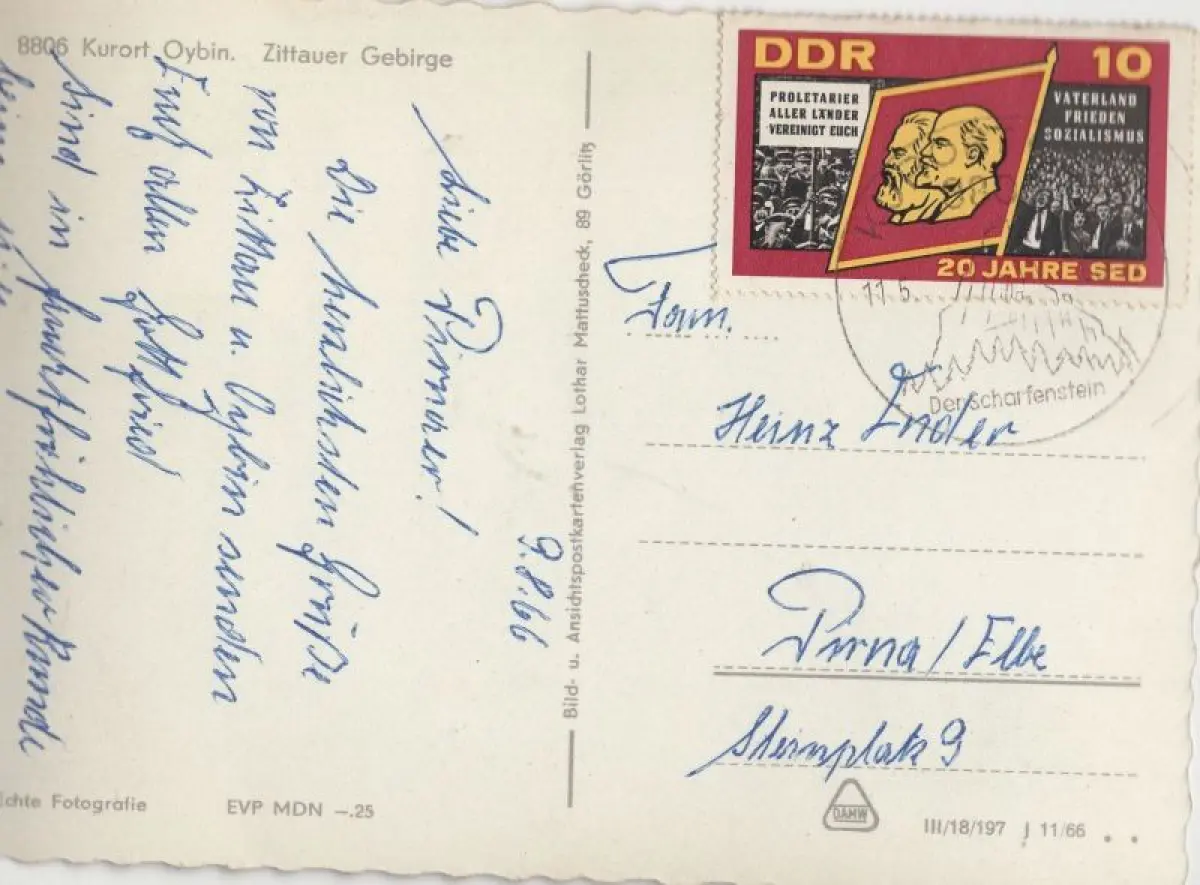 8806 Kurort Oybin. Zittauer Gebirge
9.8.66
Liebe Pirnaer!
Die herzlichsten Grüße
von Zittau u. Oybin senden
Euch allen Gottfried
Sind in feuchtfröhlicher Runde
Echte Fotografie
EVP MDN —.25
Bild- u. Ansichtspostkartenverlag Lothar Mattuscheck, 89 Görlitz
DDR 10
PROLETARIER
ALLER LÄNDER
VEREINIGT EUCH
VATERLAND
FRIEDEN
SOZIALISMUS
20 JAHRE SED
Der Scharfenstein
Fam.
Heinz Ender
Pirna / Elbe
Steinplatz 9
DAMW
III/18/197 J 11/66